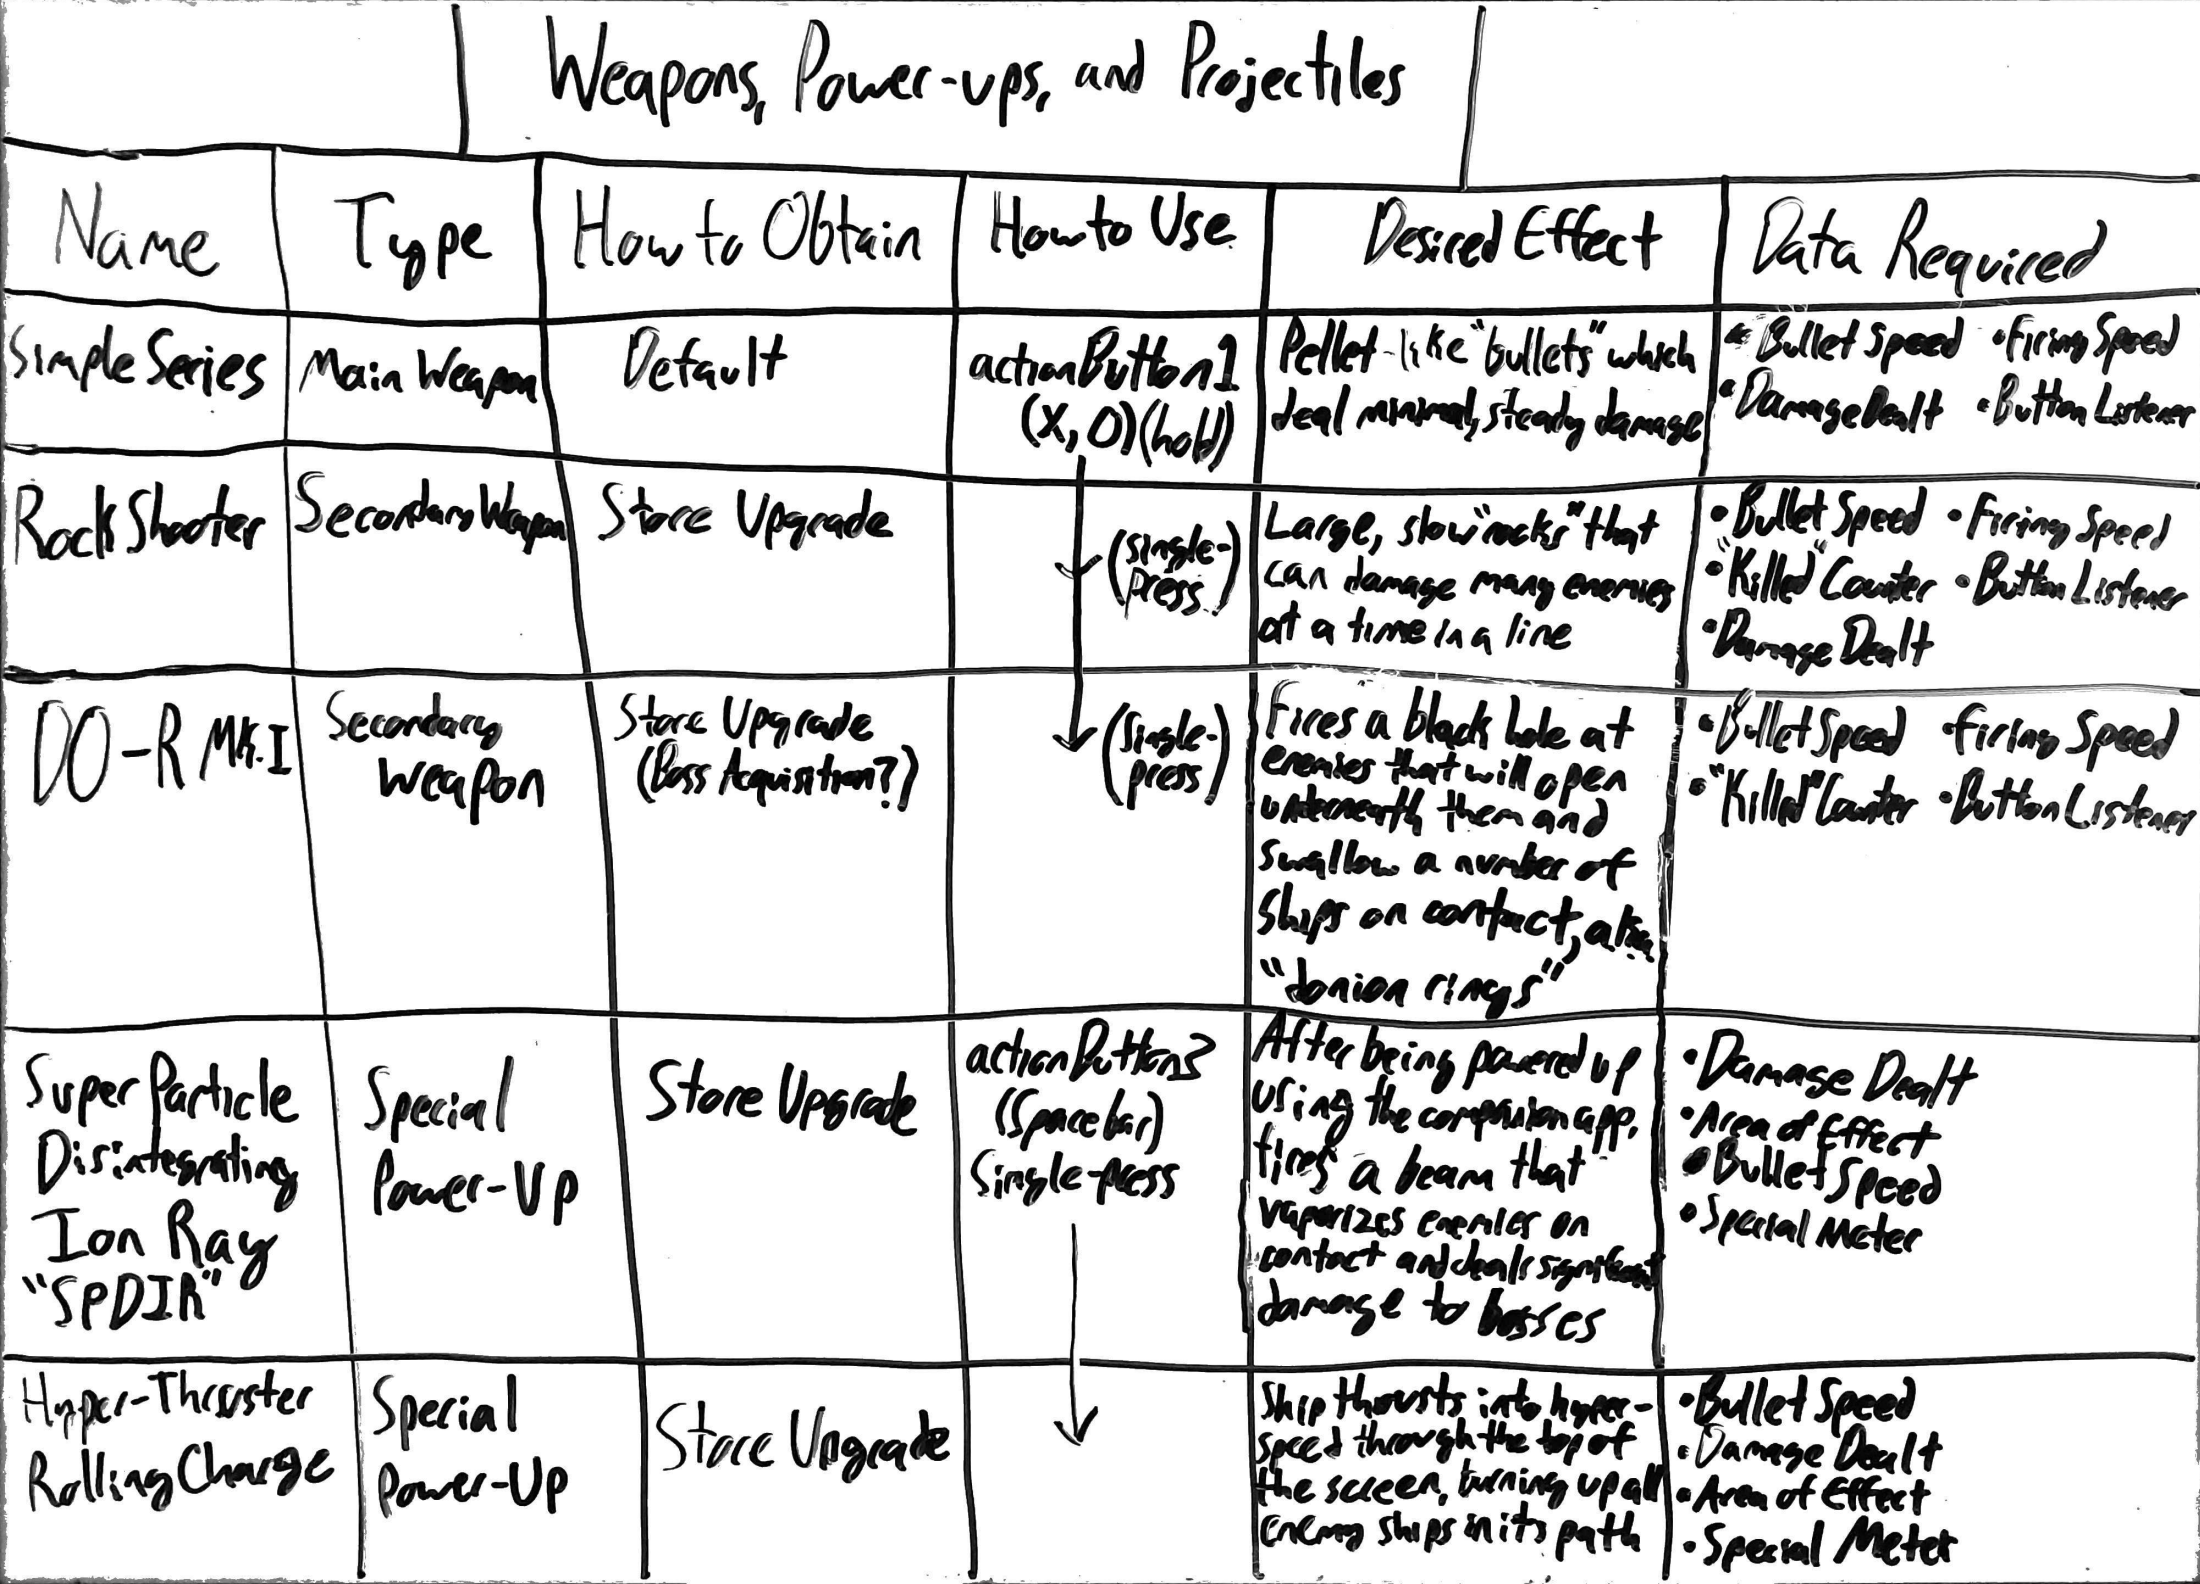 Weapons, Power-ups, and Projectiles
Name
Type
How to Obtain
How to Use
Desired Effect
Data Required
Simple Series
Main Weapon
Default
actionButton1
(X, O) (hold)
Pellet-like "bullets" which
deal minimal, steady damage
• Bullet Speed • Firing Speed
• Damage Dealt • Button Listener
Rock Shooter
Secondary Weapon
Store Upgrade
(single-
press)
Large, slow "rocks" that
can damage many enemies
at a time in a line
• Bullet Speed • Firing Speed
• "Killed" Counter • Button Listener
• Damage Dealt
DO-R MK.I
Secondary
Weapon
Store Upgrade
(Boss Acquisition?)
(single-
press)
Fires a black hole at
enemies that will open
underneath them and
swallow a number of
ships on contact, aka
"donion rings"
• Bullet Speed • Firing Speed
• "Killed" Counter • Button Listener
Super Particle
Disintegrating
Ion Ray
"SPDIR"
Special
Power-Up
Store Upgrade
actionButton3
(Spacebar)
Single-press
After being powered up
using the companion app,
"fires" a beam that
vaporizes enemies on
contact and deals significant
damage to bosses
• Damage Dealt
• Area of Effect
• Bullet Speed
• Special Meter
Hyper-Thruster
Rolling Charge
Special
Power-Up
Store Upgrade
Ship thrusts into hyper-
speed through the top of
the screen, burning up all
enemy ships in its path
• Bullet Speed
• Damage Dealt
• Area of Effect
• Special Meter